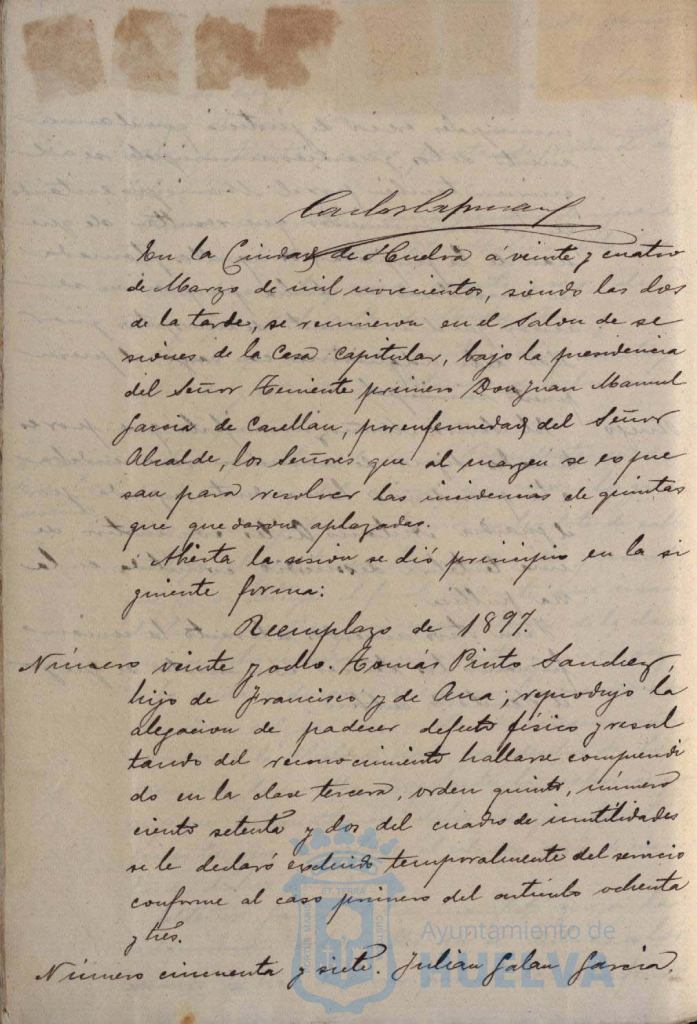 En la Ciudad de Huelva á veinte y cuatro
de Marzo de mil novecientos, siendo las dos
de la tarde, se reunieron en el Salon de se
siones de la Casa Capitular, bajo la presidencia
del Señor Teniente primero Don Juan Manuel
Garcia de Carellan, por enfermedad del Señor
Alcalde, los Señores que al margen se expre
san para resolver las incidencias de quintas
que quedaron aplazadas.
Abierta la sesion se dió principio en la si
guiente forma:
Reemplazo de 1897.
Número veinte y ocho. Tomás Pinto Sanchez,
hijo de Francisco y de Ana; reprodujo la
alegacion de padecer defecto físico y resul
tando del reconocimiento hallarse comprendi
do en la clase tercera, orden quinto, número
ciento setenta y dos del cuadro de inutilidades
se le declaró excluido temporalmente del servicio
conforme al caso primero del artículo ochenta
y tres.
Número cincuenta y siete. Julian Galan Garcia.
Ayuntamiento de
HUELVA